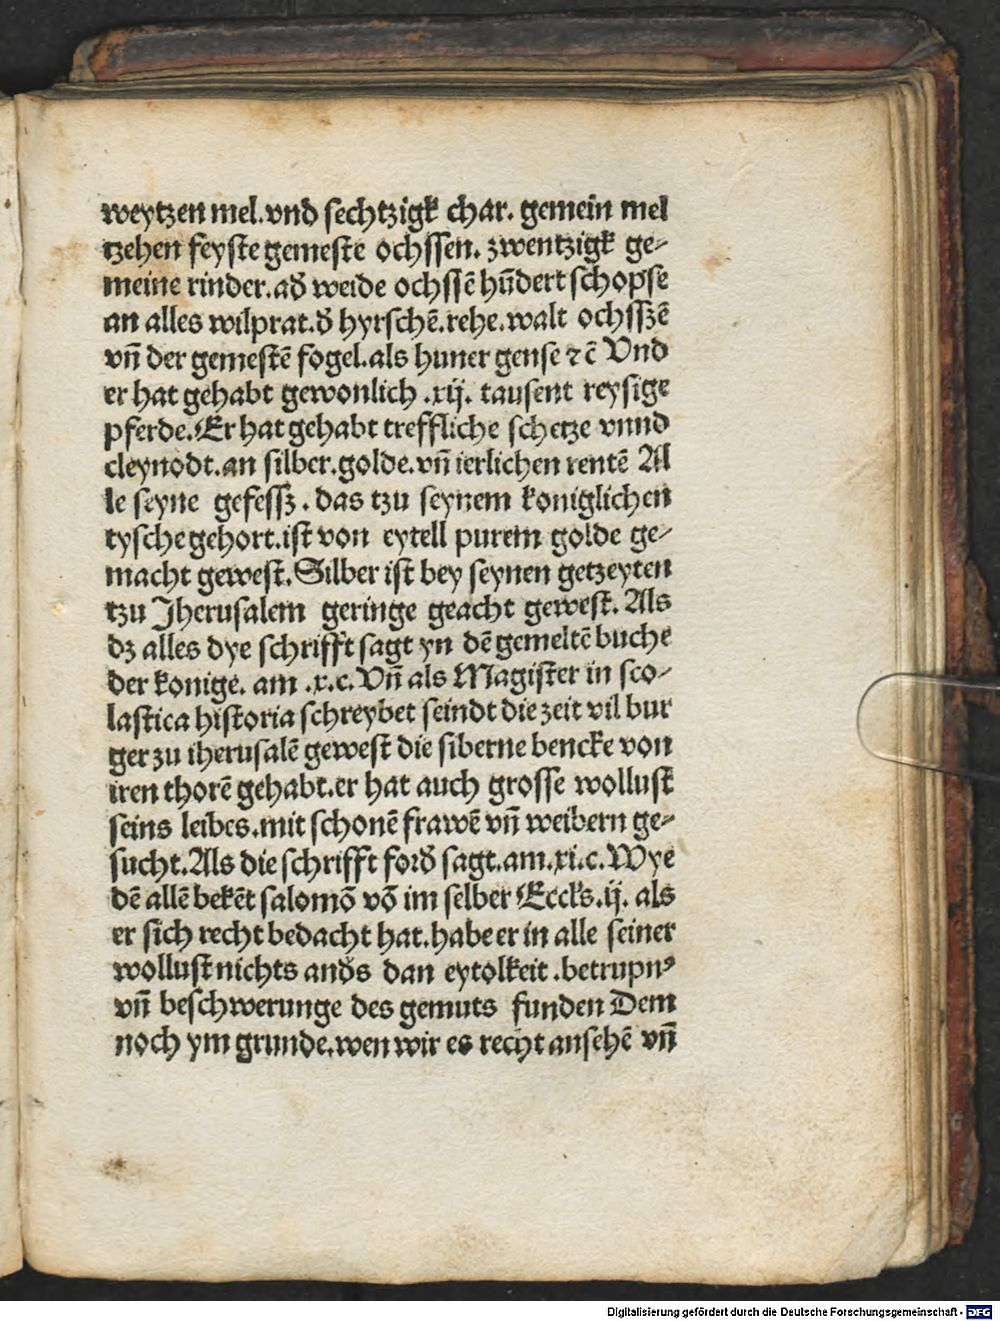 weytzen mel.vnd sechtzigk char. gemein mel
tzehen feyste gemeste ochssen. zwentzigk ge⸗
meine rinder.ad̕ weide ochssē hūdert schopse
an alles wilprat.d̕ hyrschē.rehe.walt ochsszē
vn̄ der gemestē fogel.als huner gense ⁊c̄ Vnd
er hat gehabt gewonlich .xij. tausent reysige
pferde.Er hat gehabt treffliche schetze vnnd
cleynodt.an silber.golde.vn̄ ierlichen rentē Al
le seyne gefessz . das tzu seynem koniglichen
tysche gehort.ist von eytell purem golde ge⸗
macht gewest.Silber ist bey seynen getzeyten
tzu Jherusalem geringe geacht gewest. Als
dz alles dye schrifft sagt yn dē gemeltē buche
der konige. am .x.c.Vn̄ als Magister in sco⸗
lastica historia schreybet seindt die zeit vil bur
ger zu iherusalē gewest die siberne bencke von
iren thorē gehabt.er hat auch grosse wollust
seins leibes.mit schonē frawē vn̄ weibern ge⸗
sucht.Als die schrifft ford̕ sagt.am.xi.c.Wye
dē allē bekēt salomō vō im selber Eccl̕s.ij. als
er sich recht bedacht hat.habe er in alle seiner
wollust nichts and̕s dan eytolkeit .betrupnꝰ
vn̄ beschwerunge des gemuts funden Dem
noch ym grunde.wen wir es recht ansehē vn̄
Digitalisierung gefördert durch die Deutsche Forschungsgemeinschaft - DFG